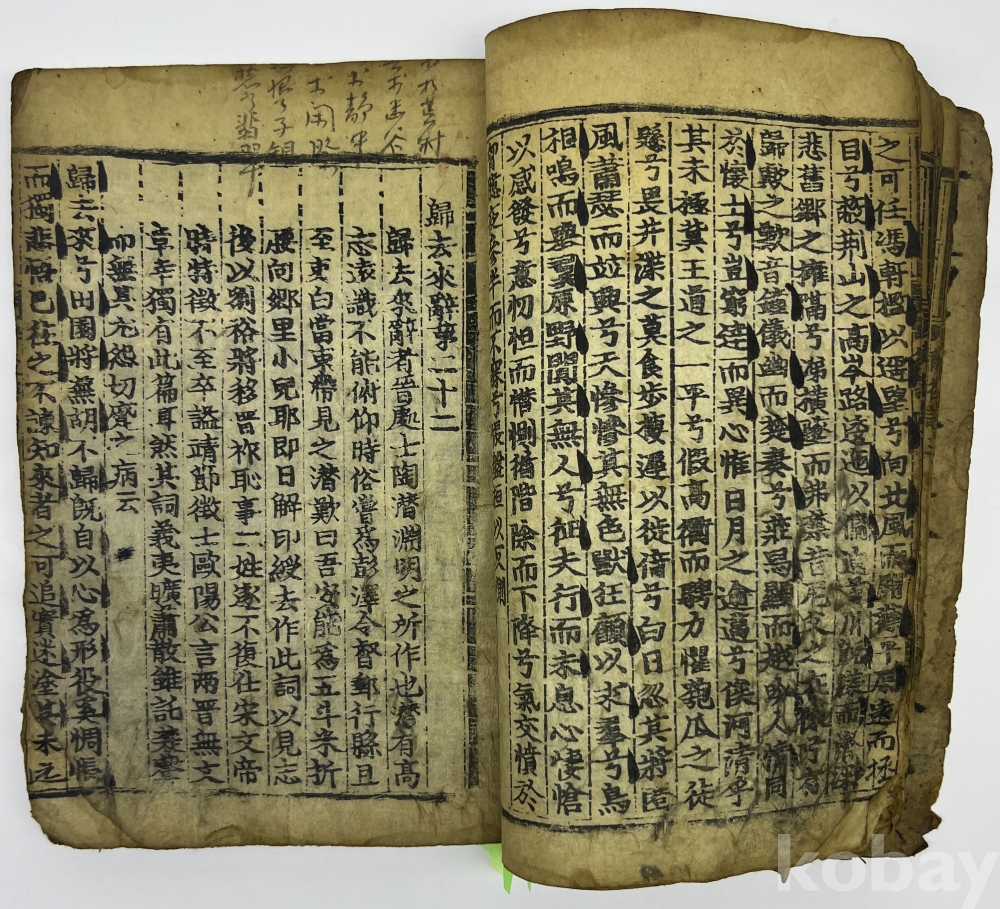 之可任馮軒檻以遥望兮向北風而開襟平原遠而極
目兮蔽荆山之高岑路逶迤以脩逈兮川旣漾而濟深
悲舊鄉之擁隔兮涕橫墜而弗禁昔尼父之在陳兮有
歸歟之歎音鍾儀幽而楚奏兮莊舄顯而越吟人情同
於懷土兮豈窮達而異心惟日月之逾邁兮俟河清乎
其未極冀王道之一平兮假高衢而騁力懼匏瓜之徒
懸兮畏井渫之莫食步棲遲以徙倚兮白日忽其將匿
風蕭瑟而竝興兮天慘慘其無色獸狂顧以求羣兮鳥
相鳴而擧翼原野闃其無人兮征夫行而未息心悽愴
以感發兮意忉怛而憯惻循階除而下降兮氣交憤於
胷臆夜參半而不寐兮悵盤桓以反側
歸去來辭第二十二
歸去來辭者晉處士陶潛淵明之所作也潛有高
志遠識不能俯仰時俗嘗爲彭澤令督郵行縣且
至吏白當束帶見之潛歎曰吾安能爲五斗米折
腰向鄕里小兒耶即日解印綬去作此詞以見志
後以劉裕將移晉祚恥事二姓遂不復仕宋文帝
時特徵不至卒謚靖節徵士歐陽公言兩晉無文
章幸獨有此篇耳然其詞義夷曠蕭散雖託楚聲
而無其尤怨切蹙之病云
歸去來兮田園將無胡不歸旣自以心爲形役奚惆悵
而獨悲悟已往之不諫知來者之可追實迷塗其未遠
kobay